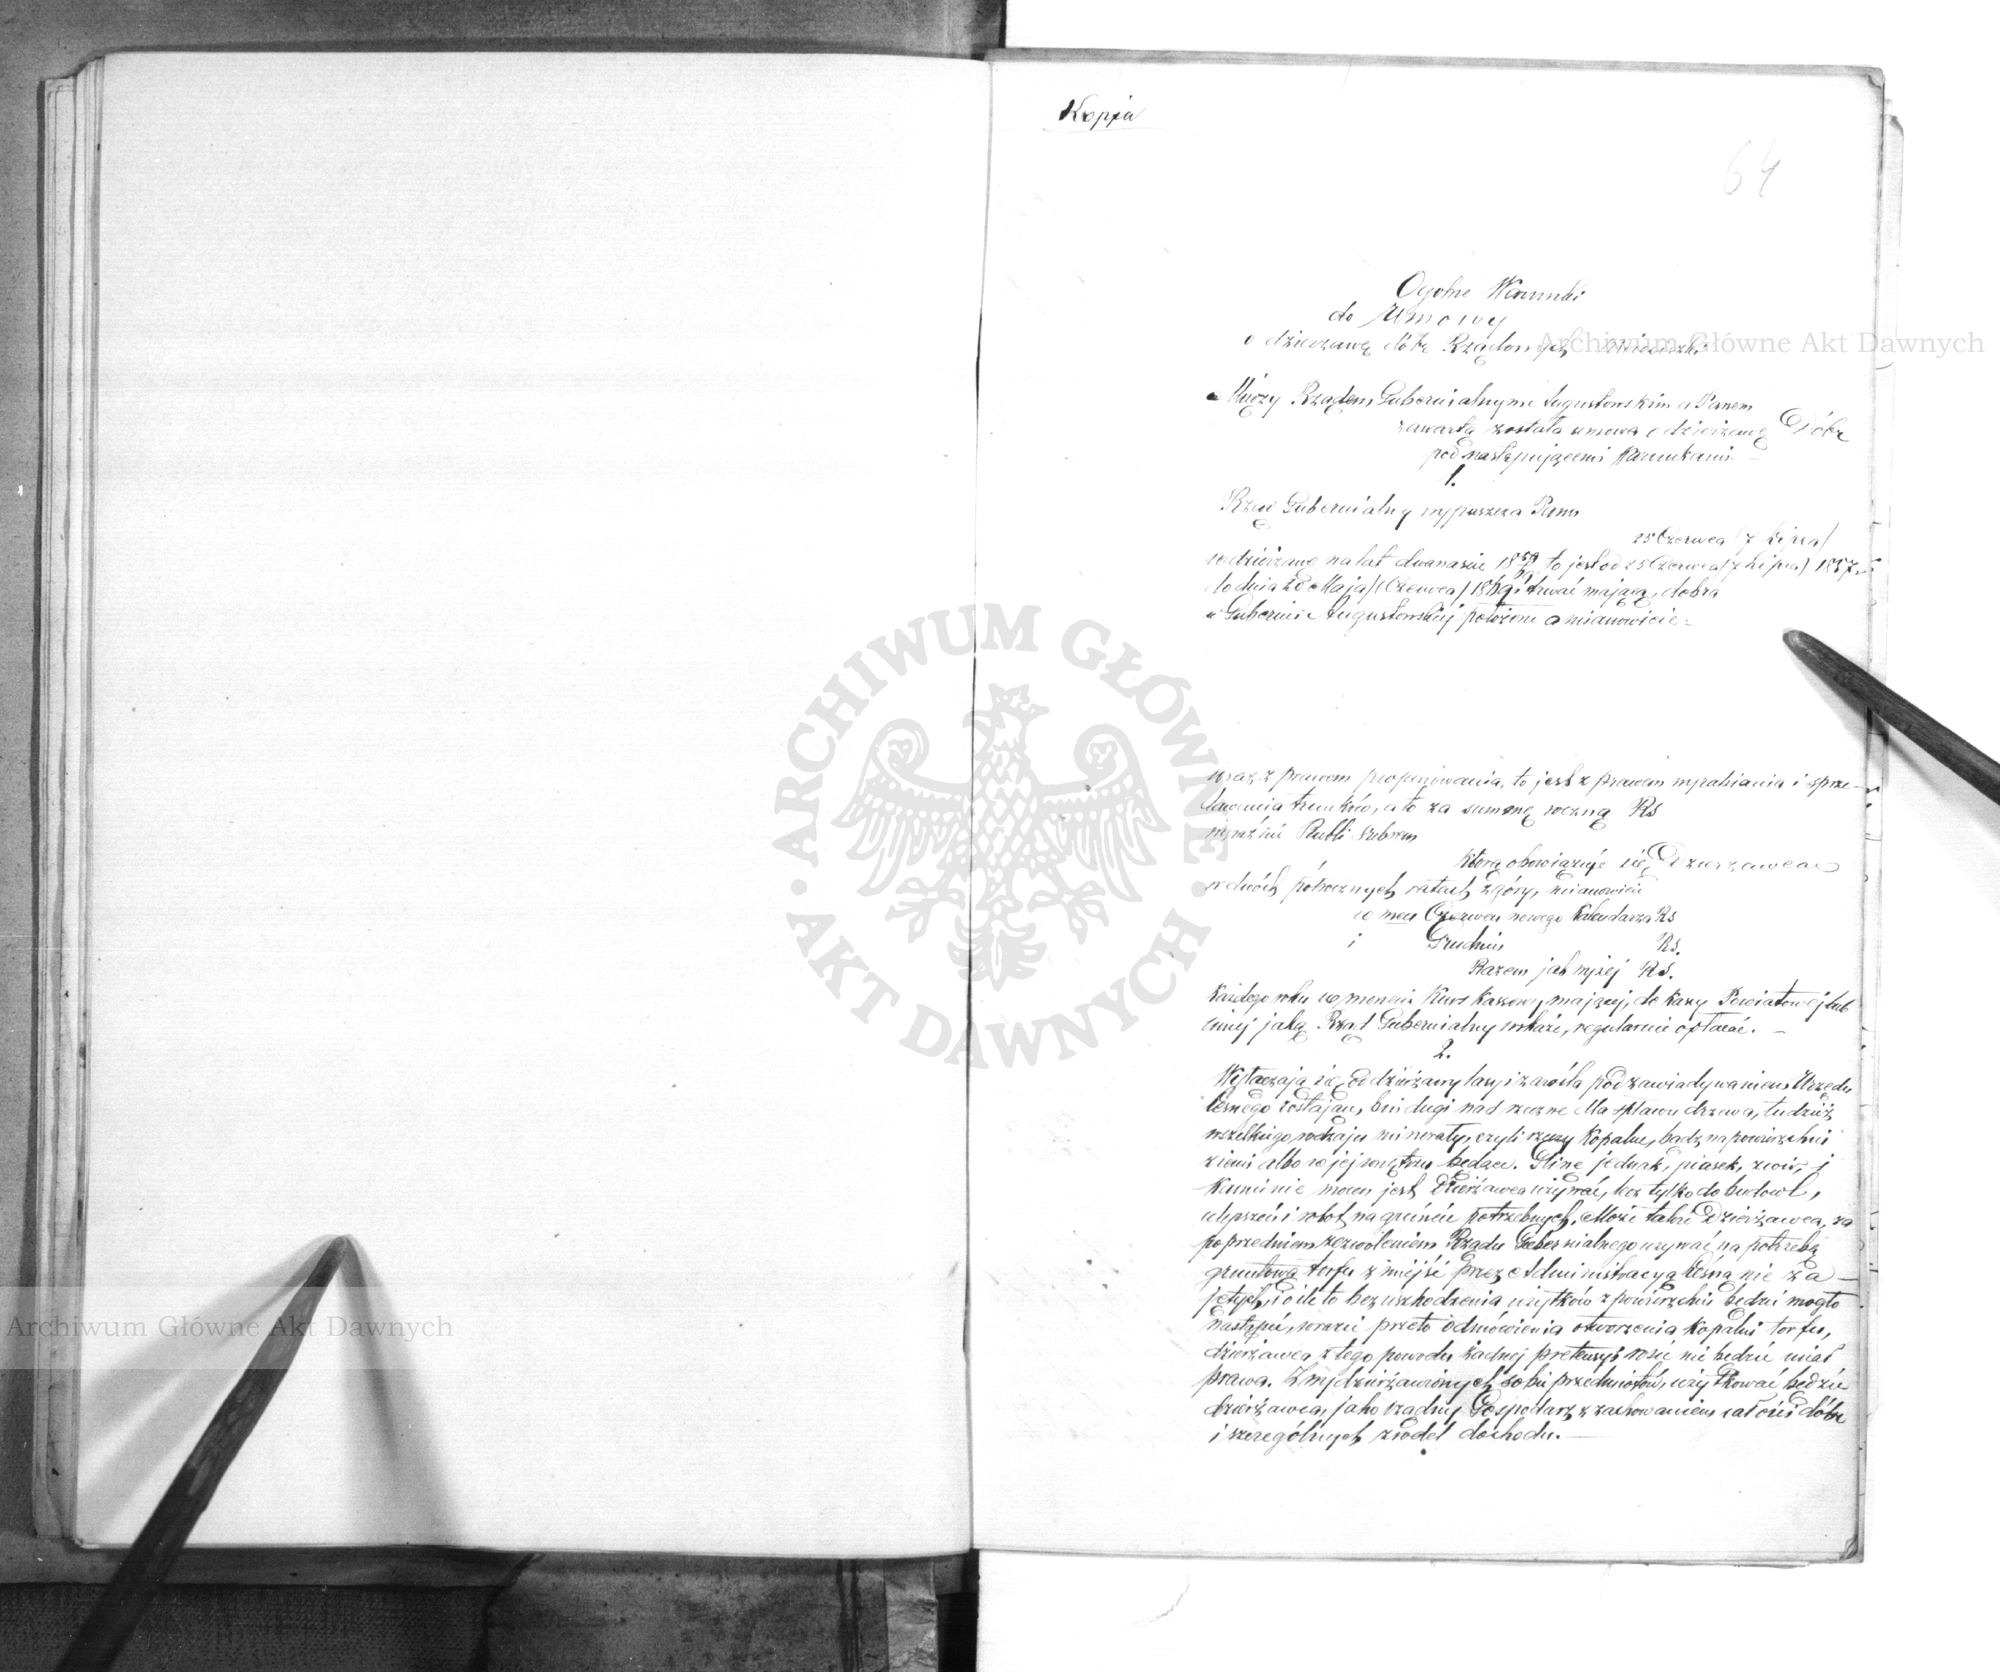 Kopja
64
Ogólne Warunki
do Umowy
o dzierżawę dóbr Rządowych
Między Rządem Gubernialnym Augustowskim a Panem
zawartą została umowa o dzierżawę Dóbr
pod następującemi Warunkami
1.
Rząd Gubernialny wypuszcza Panu
25 Czerwca / 7 Lipca /
w dzierżawę na lat dwanaście 18 to jest od 25 Czerwca / 7 Lipca / 1857 r.
do dnia 20 Maja / 1 Czerwca / 1869 trwać mającą, dobra
w Gubernii Augustowskiej położone a mianowicie
wraz z prawem propinowania, to jest z prawem wyrabiania i sprze-
dawania trunków, a to za summę roczną Rs
wyraźnie Rubli srebrem
którą obowiązuje się Dzierżawca
w dwóch półrocznych ratach z góry, mianowicie
w mcu Czerwcu nowego Kalendarza Rs
i Grudniu Rs.
Razem jak wyżej Rs.
każdego roku w monecie Kurs kassowy mającej, do kassy Powiatowej lub
innej jaką Rząd Gubernialny wskaże, regularnie opłacać. —
2.
Wyłączają się od dzierżawy lasy i zarośla pod zawiadywaniem Urzędu
leśnego zostające, bindugi nad rzeczne dla spławu drzewa, tudzież
wszelkiego rodzaju minerały, czyli rzeczy kopalne, bądź na powierzchni
ziemi albo w jej wnętrzu będące. Glinę jednak, piasek, żwir, i
kamienie mocen jest Dzierżawca używać, lecz tylko do budowl,
ulepszeń i robót na gruncie potrzebnych. Może także Dzierżawca, za
poprzedniem zezwoleniem Rządu Gubernialnego używać na potrzebę
gruntową torfu z miejsc przez Administracyą Leśną nie za-
jętych, i o ile to bez uszkodzenia użytków z powierzchni będzie mogło
nastąpić, w razie przeto odmówienia otworzenia kopalni torfu,
dzierżawca z tego powodu żadnej pretensyi rościć nie będzie miał
prawa. Z wydzierżawionych sobie przedmiotów, użytkować będzie
dzierżawca, jako rządny Gospodarz z zachowaniem całości dóbr
i szczególnych źródeł dochodu. —
Archiwum Główne Akt Dawnych
ARCHIWUM GŁÓWNE
AKT DAWNYCH
Archiwum Główne Akt Dawnych